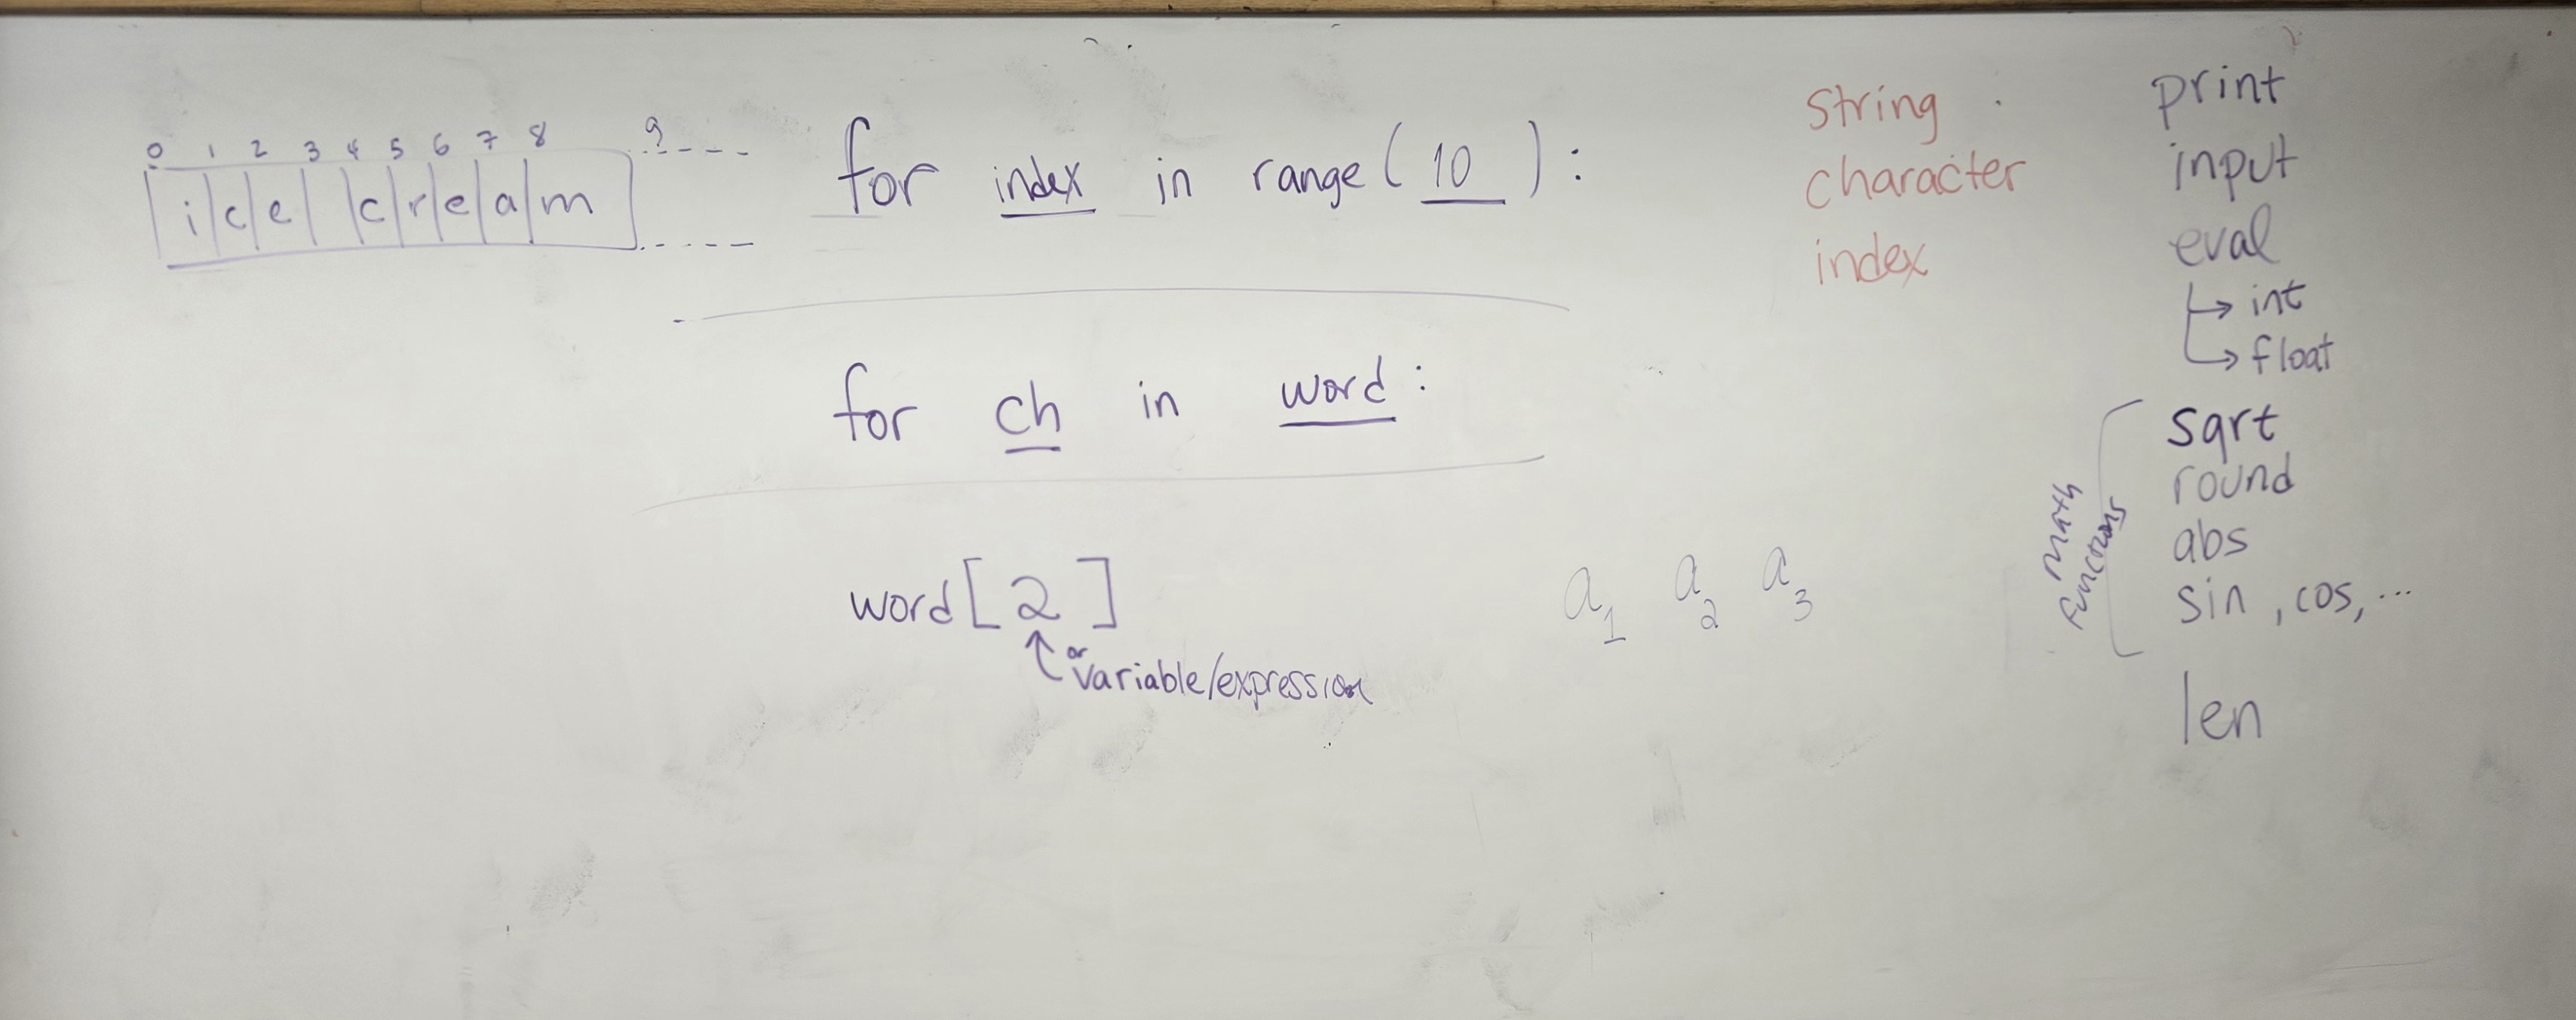 0 1 2 3 4 5 6 7 8 9
i c e   c r e a m
for index in range ( 10 ) :
for ch in word :
word [ 2 ]
or
variable/expression
a1 a2 a3
string
character
index
print
input
eval
→ int
→ float
math
functions
sqrt
round
abs
sin , cos, ...
len